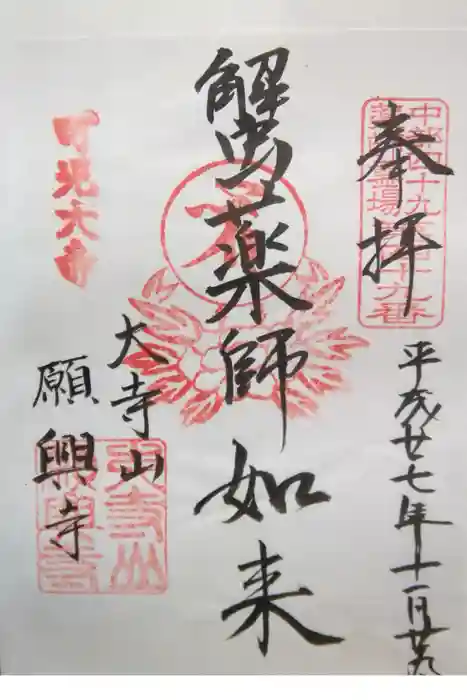 奉拝
中部四十九
薬師霊場第四十九番
平成廿七年十一月廿九
蟹薬師如来
大寺山
願興寺
可児大寺